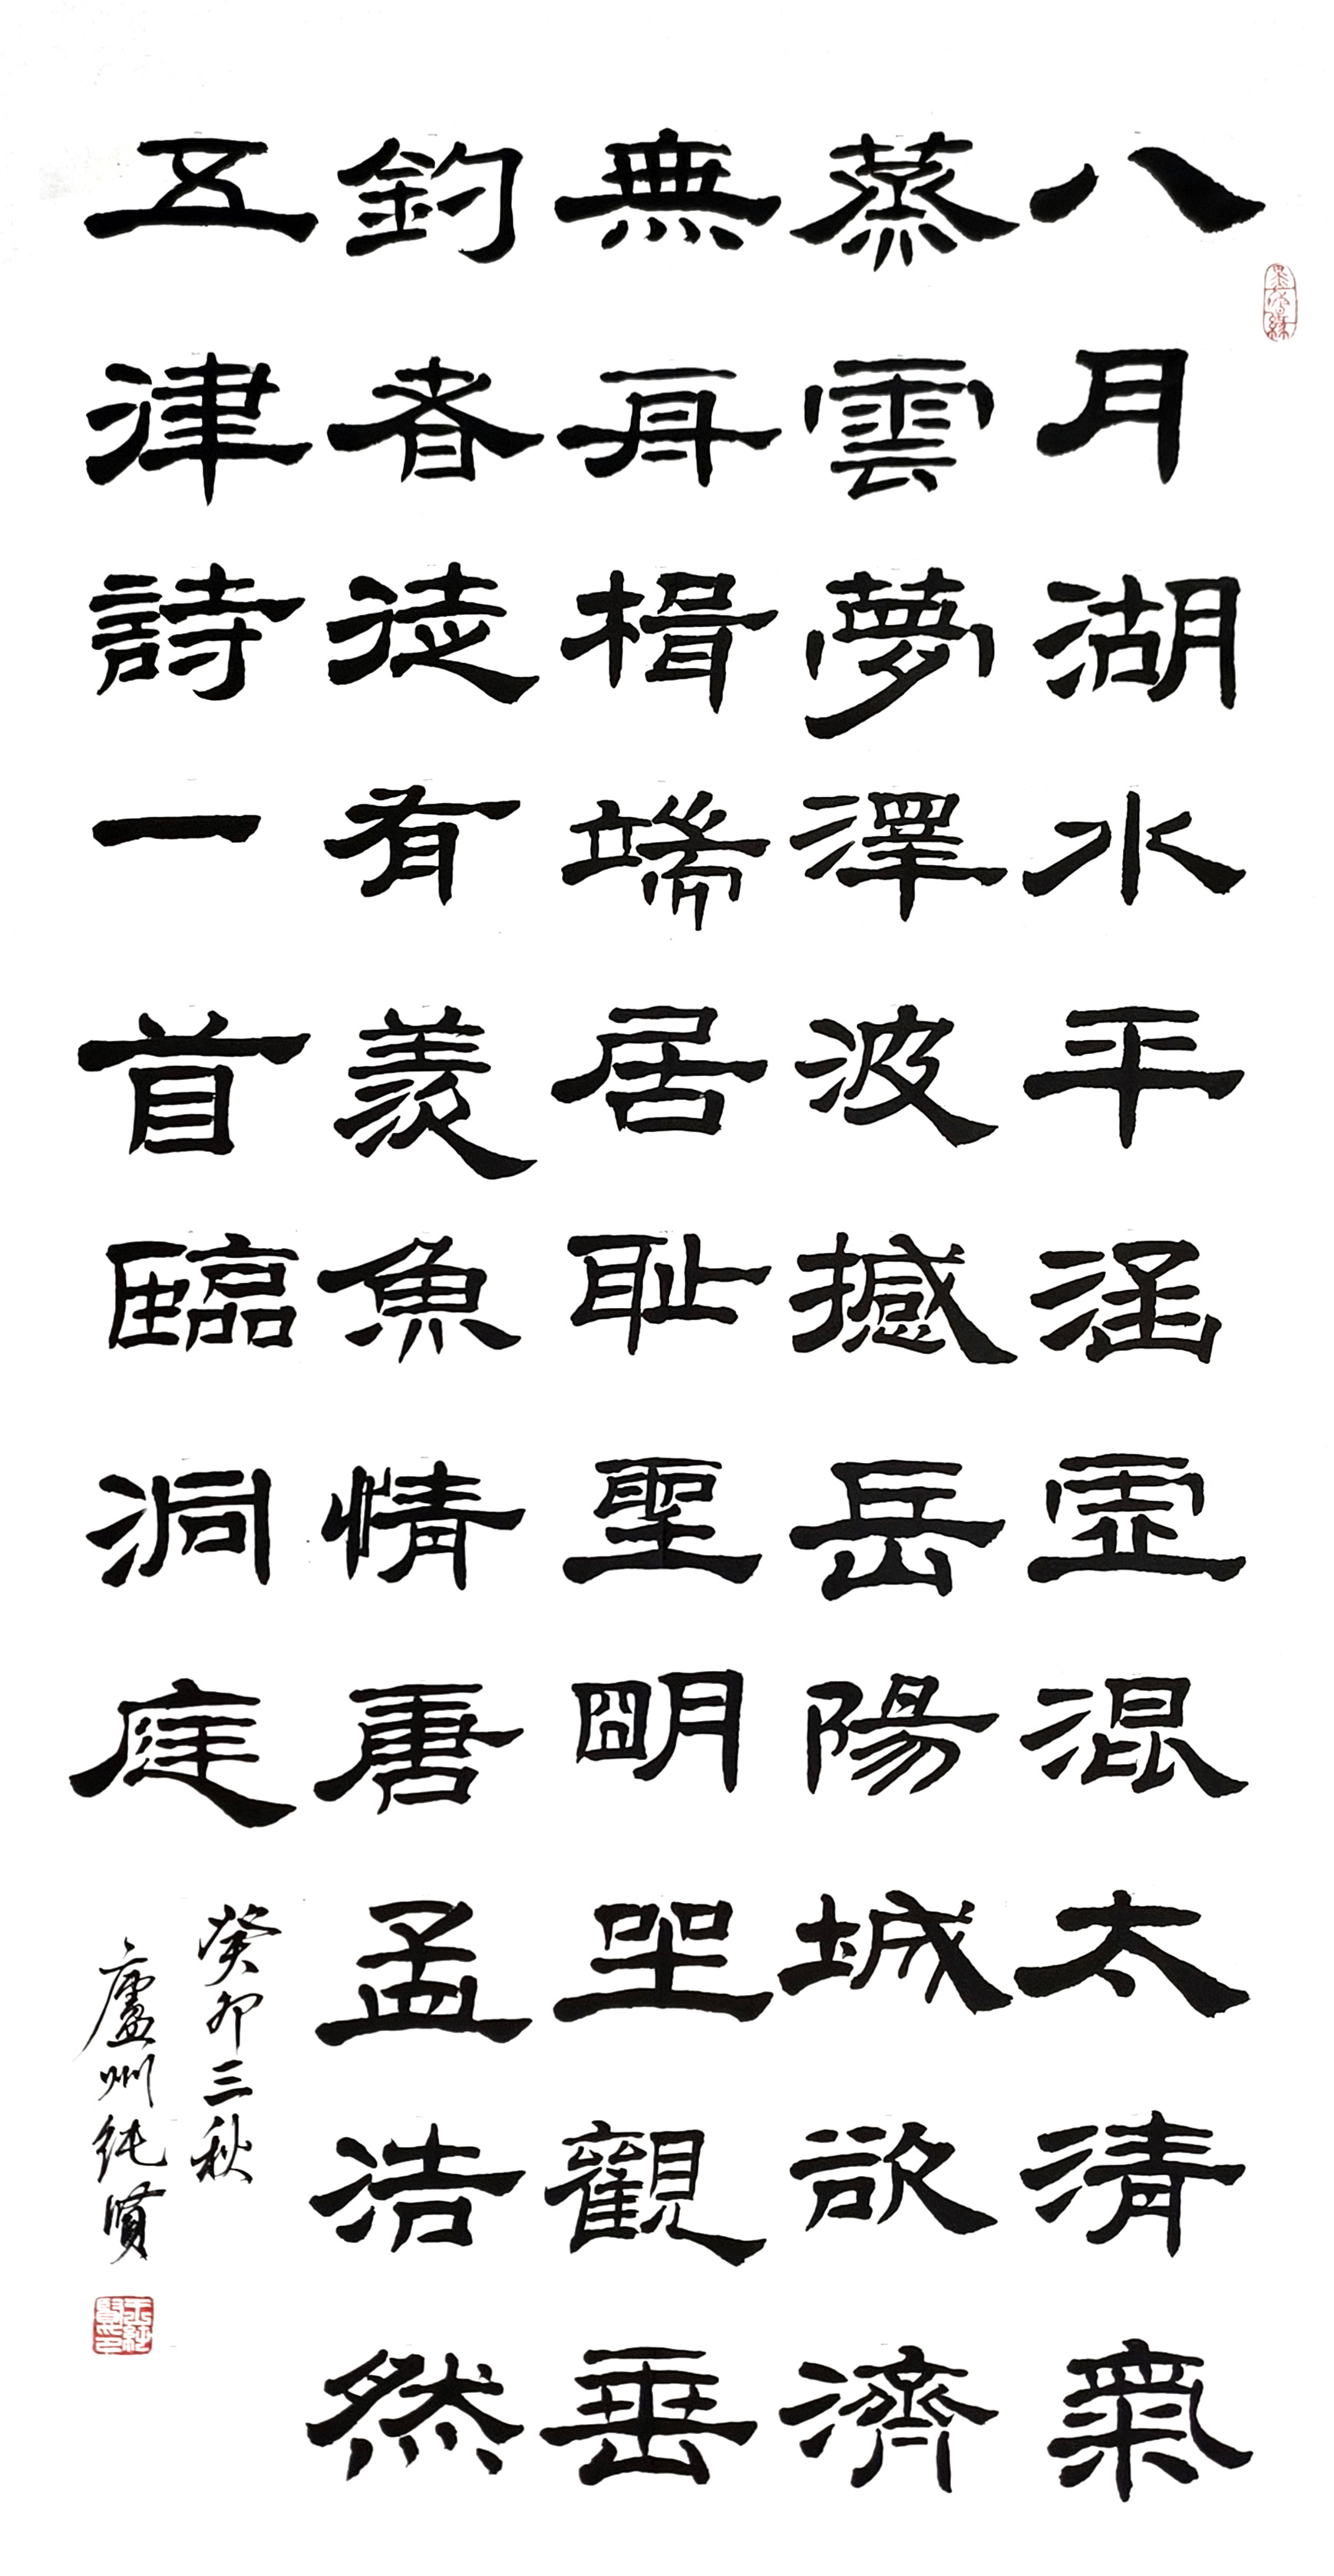 八月湖水平涵虚混太清氣
蒸雲夢澤波撼岳陽城欲濟
無舟楫端居耻聖明坐觀垂
釣者徒有羨魚情唐孟浩然
五律詩一首臨洞庭
癸卯三秋
廬州純賢